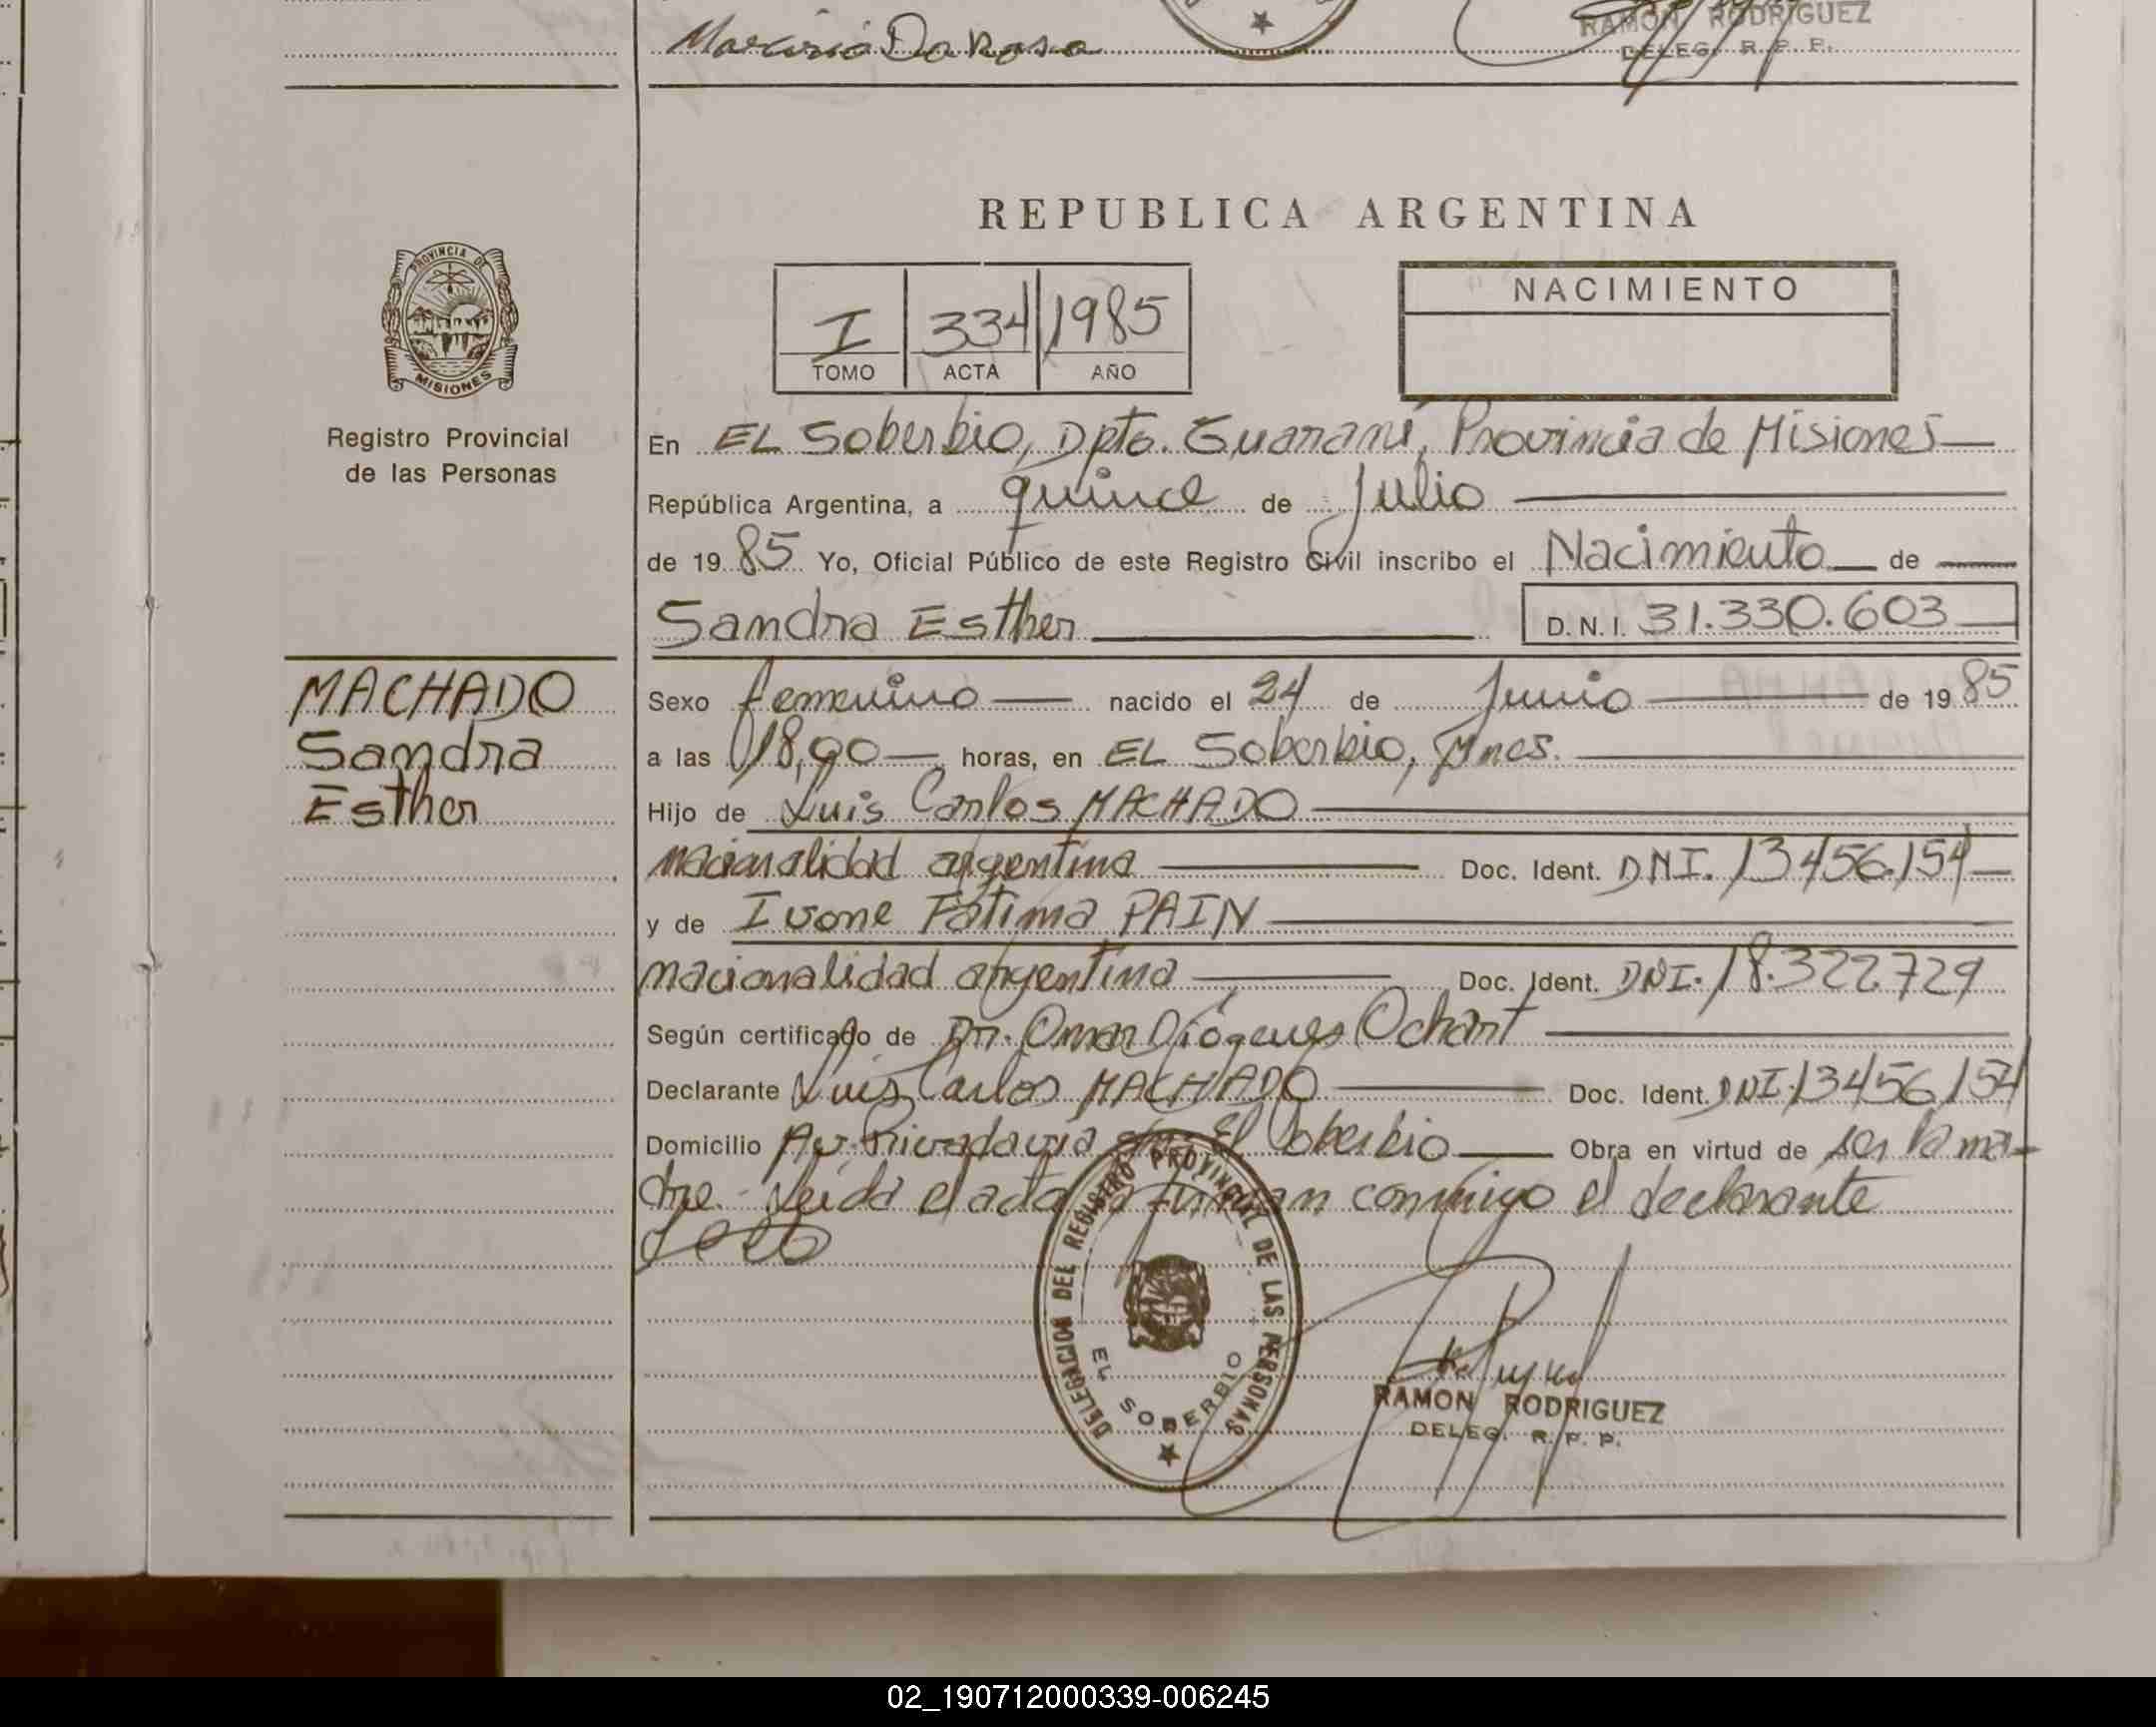 Marciria Da Rosa
RAMON RODRIGUEZ
DELEG. R. P. P.
REPUBLICA ARGENTINA
PROVINCIA DE
MISIONES
Registro Provincial
de las Personas
I 334 1985
TOMO ACTA AÑO
NACIMIENTO
En EL Soberbio, Dpto. Guaraní, Provincia de Misiones
República Argentina, a quince de Julio
de 1985 Yo, Oficial Público de este Registro Civil inscribo el Nacimiento de
Sandra Esther D.N.I. 31.330.603
MACHADO
Sandra
Esther
Sexo femenino nacido el 24 de Junio de 1985
a las 18,00 horas, en EL Soberbio, Mnes.
Hijo de Luis Carlos MACHADO
nacionalidad argentina Doc. Ident. DNI. 13.456.154
y de Ivone Fatima PAIN
nacionalidad argentina Doc. Ident. DNI. 18.322.729
Según certificado de Dr. Omar Diógenes Ochant
Declarante Luis Carlos MACHADO Doc. Ident. DNI. 13.456.154
Domicilio Av. Rivadavia El Soberbio Obra en virtud de ser la ma-
dre. Leida el acta la firman conmigo el declarante
DELEGACION DEL REGISTRO PROVINCIAL DE LAS PERSONAS
EL SOBERBIO
RAMON RODRIGUEZ
DELEG. R. P. P.
02_190712000339-006245